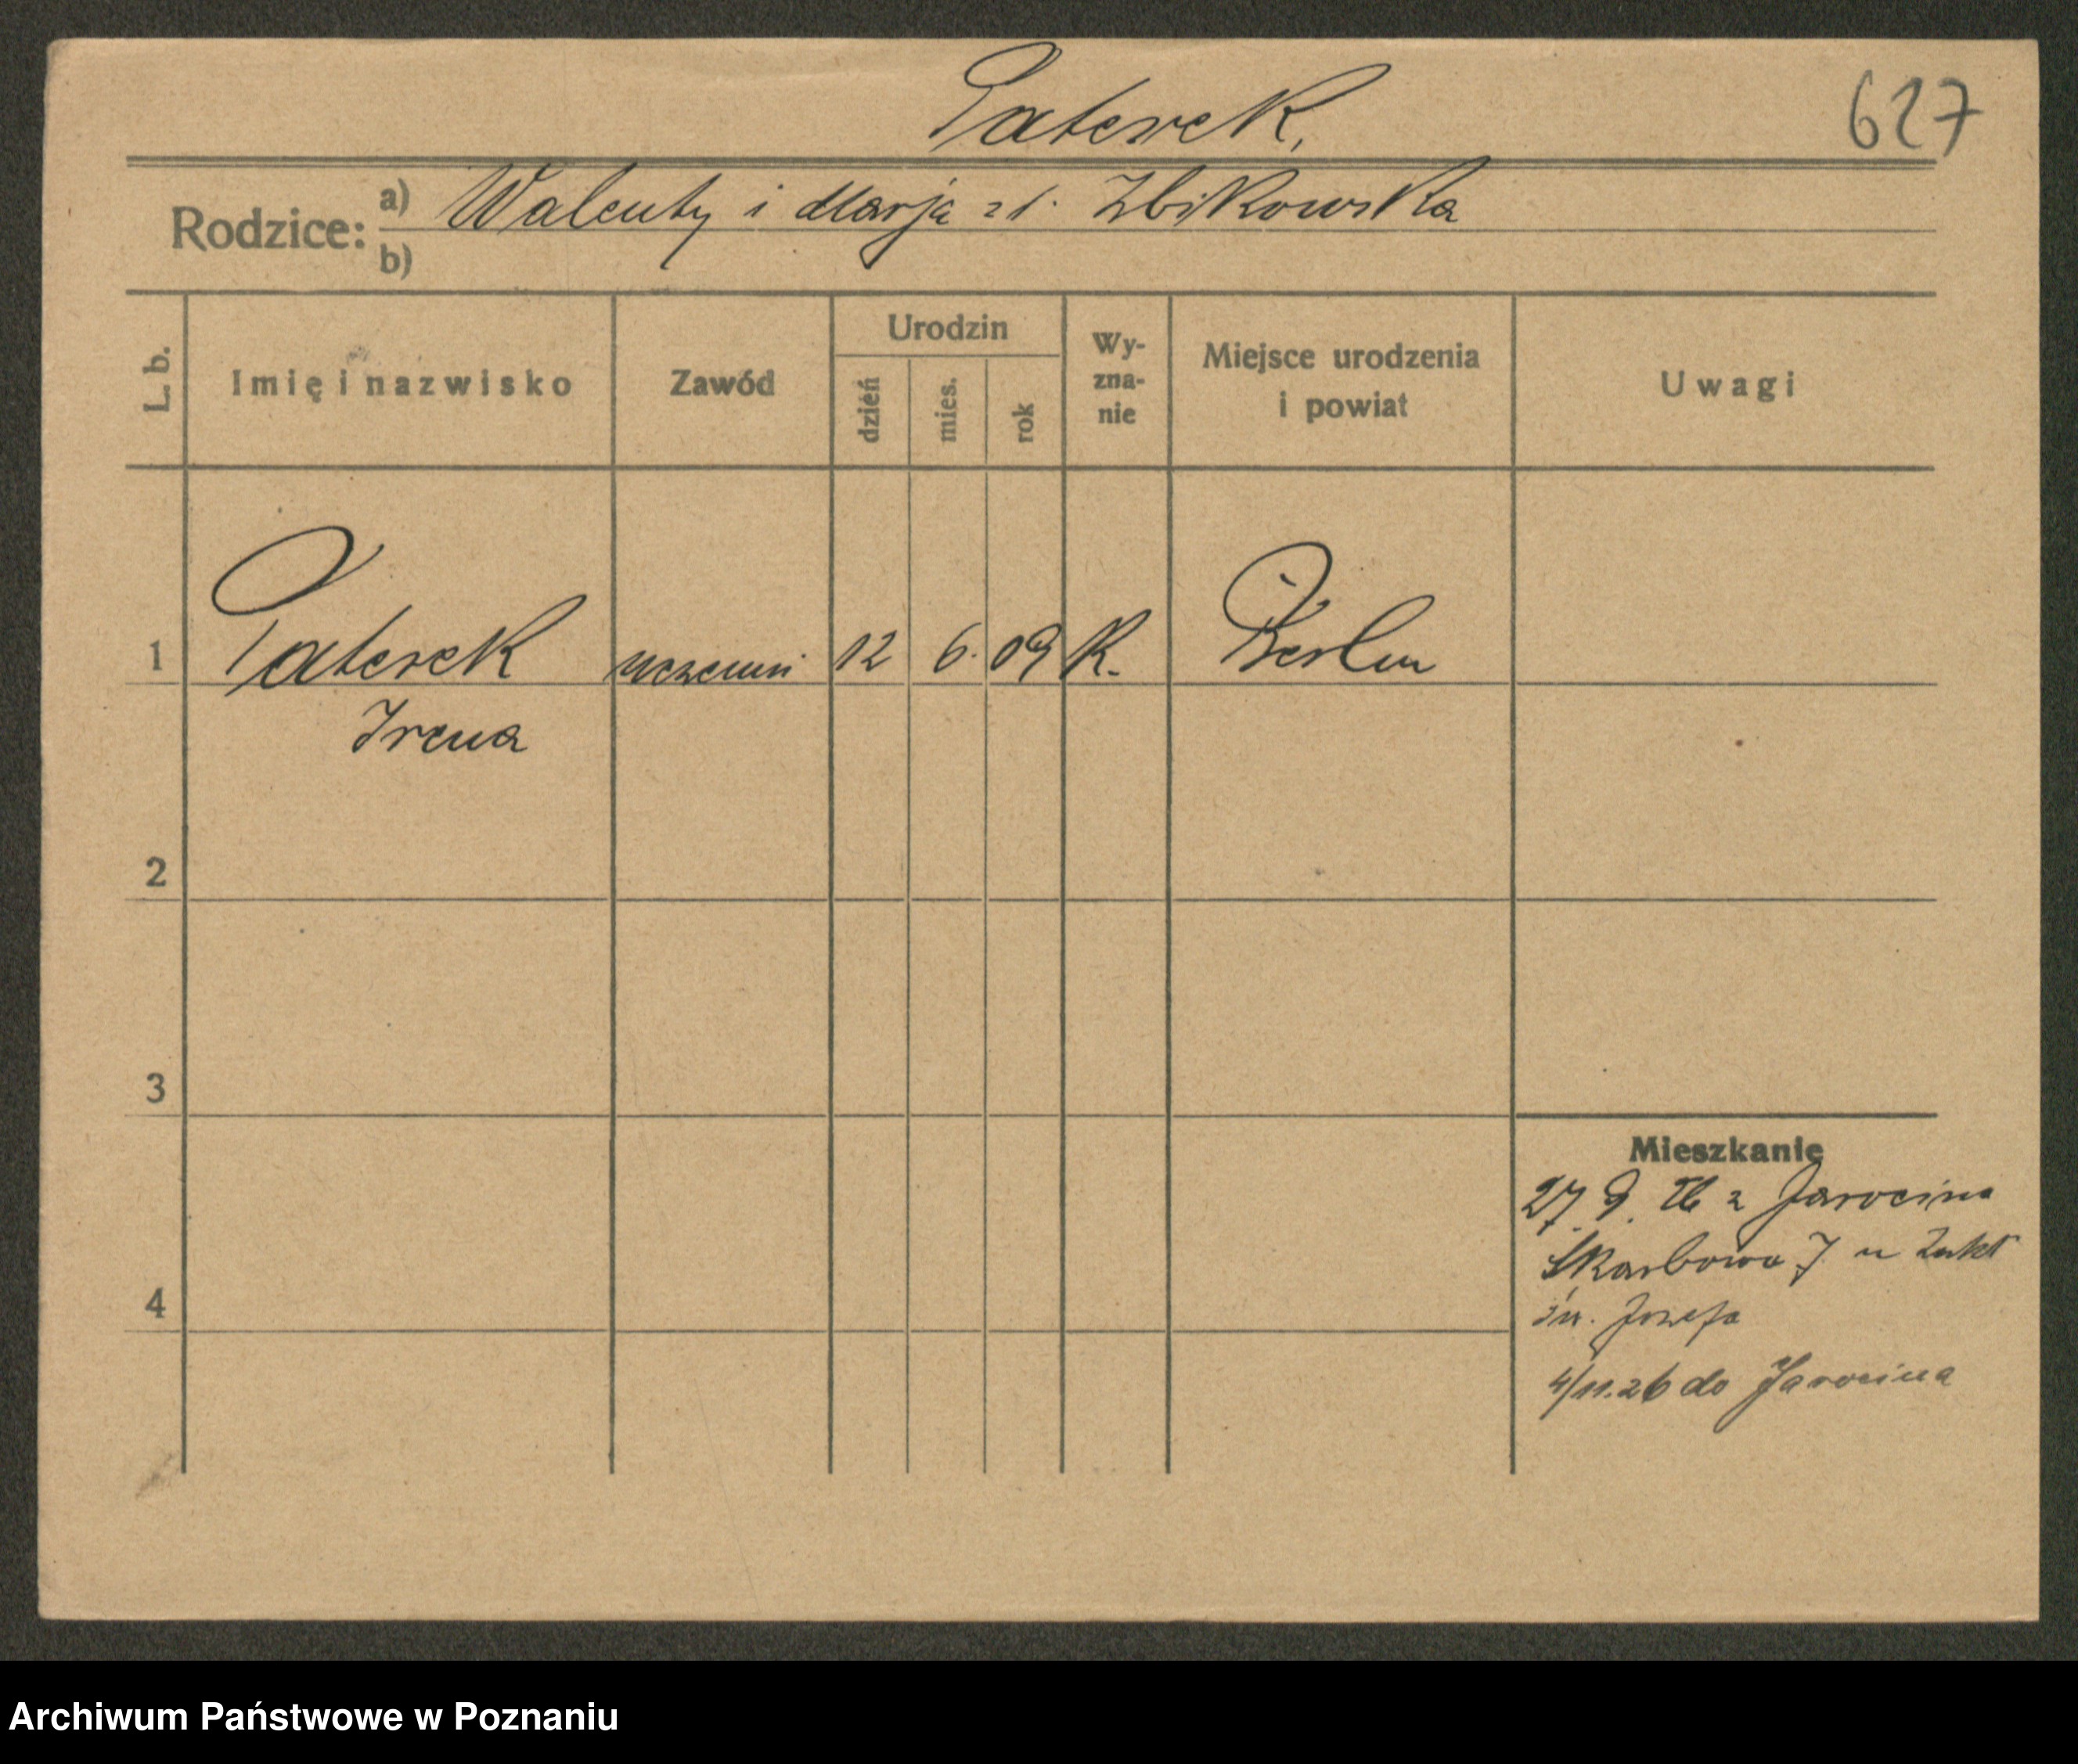 Paterek,
627
Rodzice: a) Walenty i Marja z d. Zbikowska
b)
L. b. Imię i nazwisko Zawód Urodzin dzień mies. rok Wy-zna-nie Miejsce urodzenia i powiat Uwagi
1 Paterek uczenni 12 6. 09 K. Berlin
Irena
2
3
4
Mieszkanie
27. 9. 26 z Jarocina
Skarbowa 7 u Zakł
św. Józefa
4/11.26 do Jarocina
Archiwum Państwowe w Poznaniu